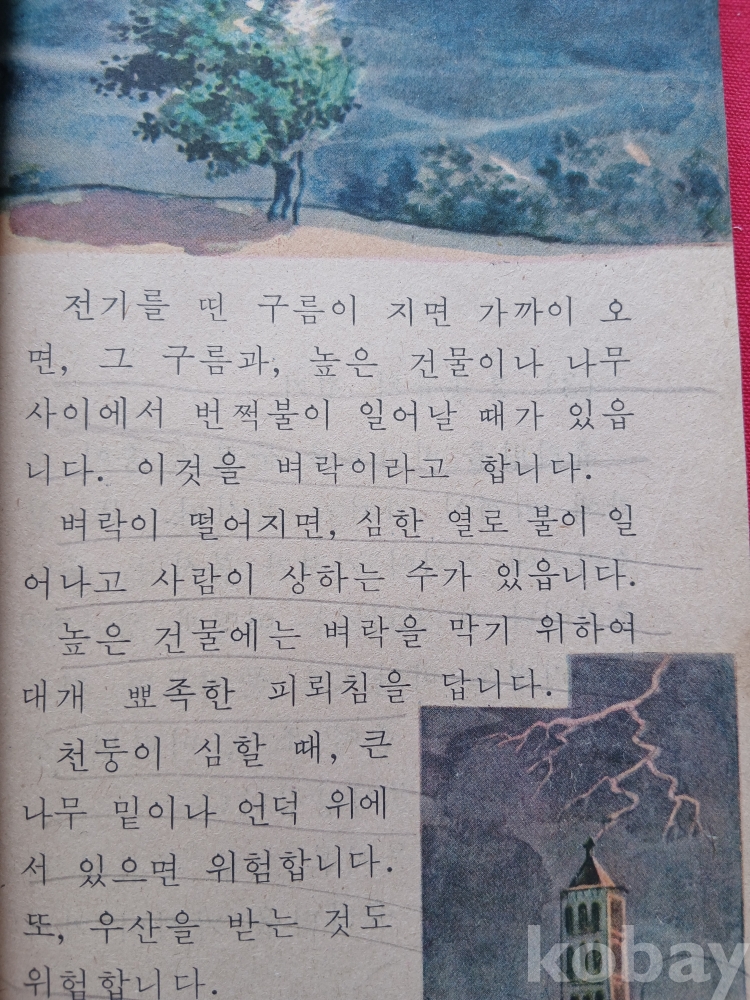 전기를 띤 구름이 지면 가까이 오
면, 그 구름과, 높은 건물이나 나무
사이에서 번쩍불이 일어날 때가 있읍
니다. 이것을 벼락이라고 합니다.
벼락이 떨어지면, 심한 열로 불이 일
어나고 사람이 상하는 수가 있읍니다.
높은 건물에는 벼락을 막기 위하여
대개 뾰족한 피뢰침을 답니다.
천둥이 심할 때, 큰
나무 밑이나 언덕 위에
서 있으면 위험합니다.
또, 우산을 받는 것도
위험합니다.
kobay